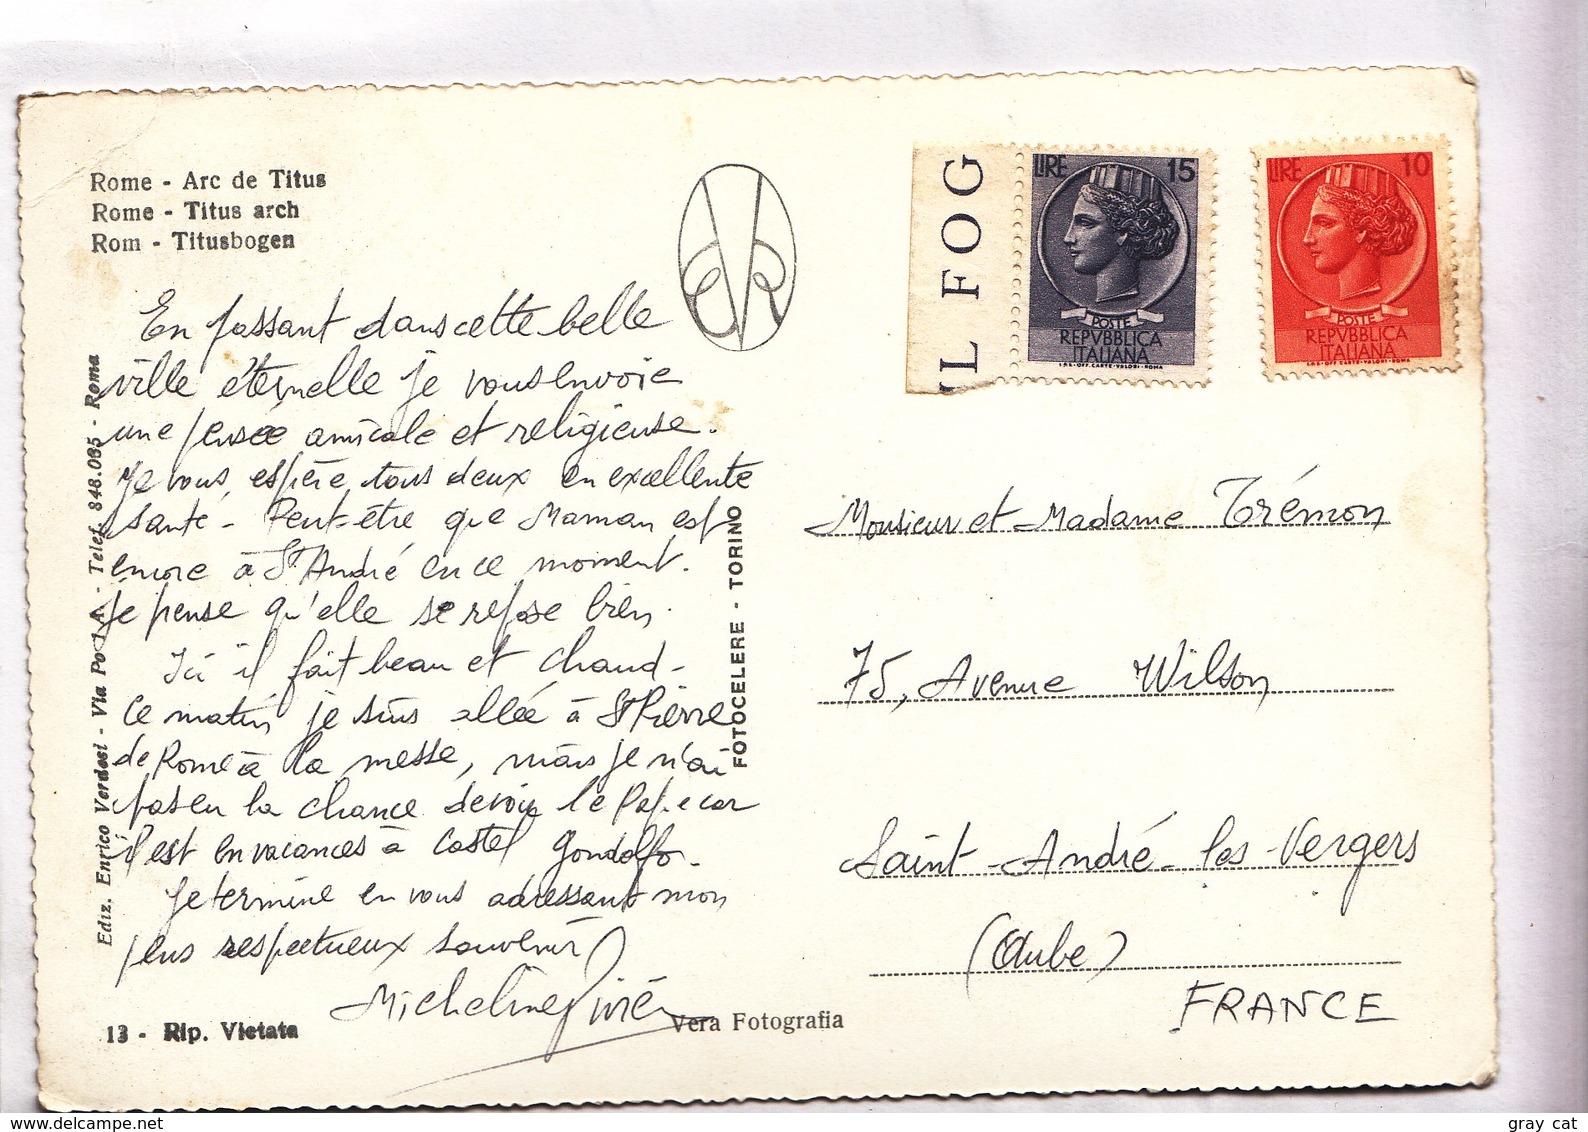 Rome - Arc de Titus
Rome - Titus arch
Rom - Titusbogen
En passant dans cette belle
ville éternelle je vous envoie
une pensée amicale et religieuse.
Je vous espère tous deux en excellente
santé - Peut-être que Maman est
encore à St André en ce moment.
Je pense qu'elle se repose bien.
Ici il fait beau et chaud -
Ce matin je suis allée à St Pierre
de Rome à la messe, mais je n'ai
pas eu la chance de voir le Pape car
il est en vacances à Castel Gondolfo.
Je termine en vous adressant mon
plus respectueux souvenir
Micheline
13 - Rip. Vietata
Vera Fotografia
Ediz. Enrico Verdesi - Via Po 1 A. - Telef. 848.085 - Roma
FOTOCELERE - TORINO
IL FOG
LIRE 15
POSTE
REPVBBLICA
ITALIANA
I.P.S.-OFF. CARTE-VALORI-ROMA
LIRE 10
POSTE
REPVBBLICA
ITALIANA
I.P.S.-OFF. CARTE-VALORI-ROMA
Monsieur et Madame Trémon
75, Avenue Wilson
Saint-André-les-Vergers
(Aube)
FRANCE
www.delcampe.net
gray cat